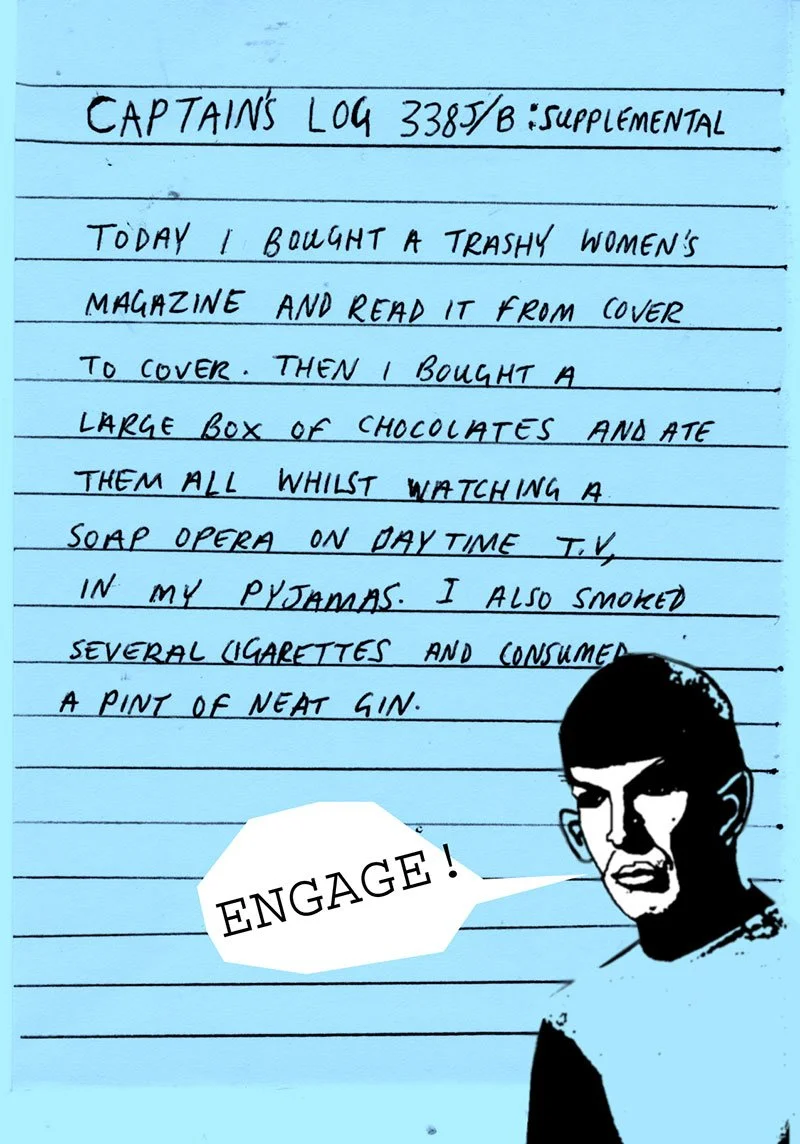 CAPTAIN'S LOG 338J/B :SUPPLEMENTAL
TODAY I BOUGHT A TRASHY WOMEN'S
MAGAZINE AND READ IT FROM COVER
TO COVER. THEN I BOUGHT A
LARGE BOX OF CHOCOLATES AND ATE
THEM ALL WHILST WATCHING A
SOAP OPERA ON DAYTIME T.V,
IN MY PYJAMAS. I ALSO SMOKED
SEVERAL CIGARETTES AND CONSUMED
A PINT OF NEAT GIN.
ENGAGE!